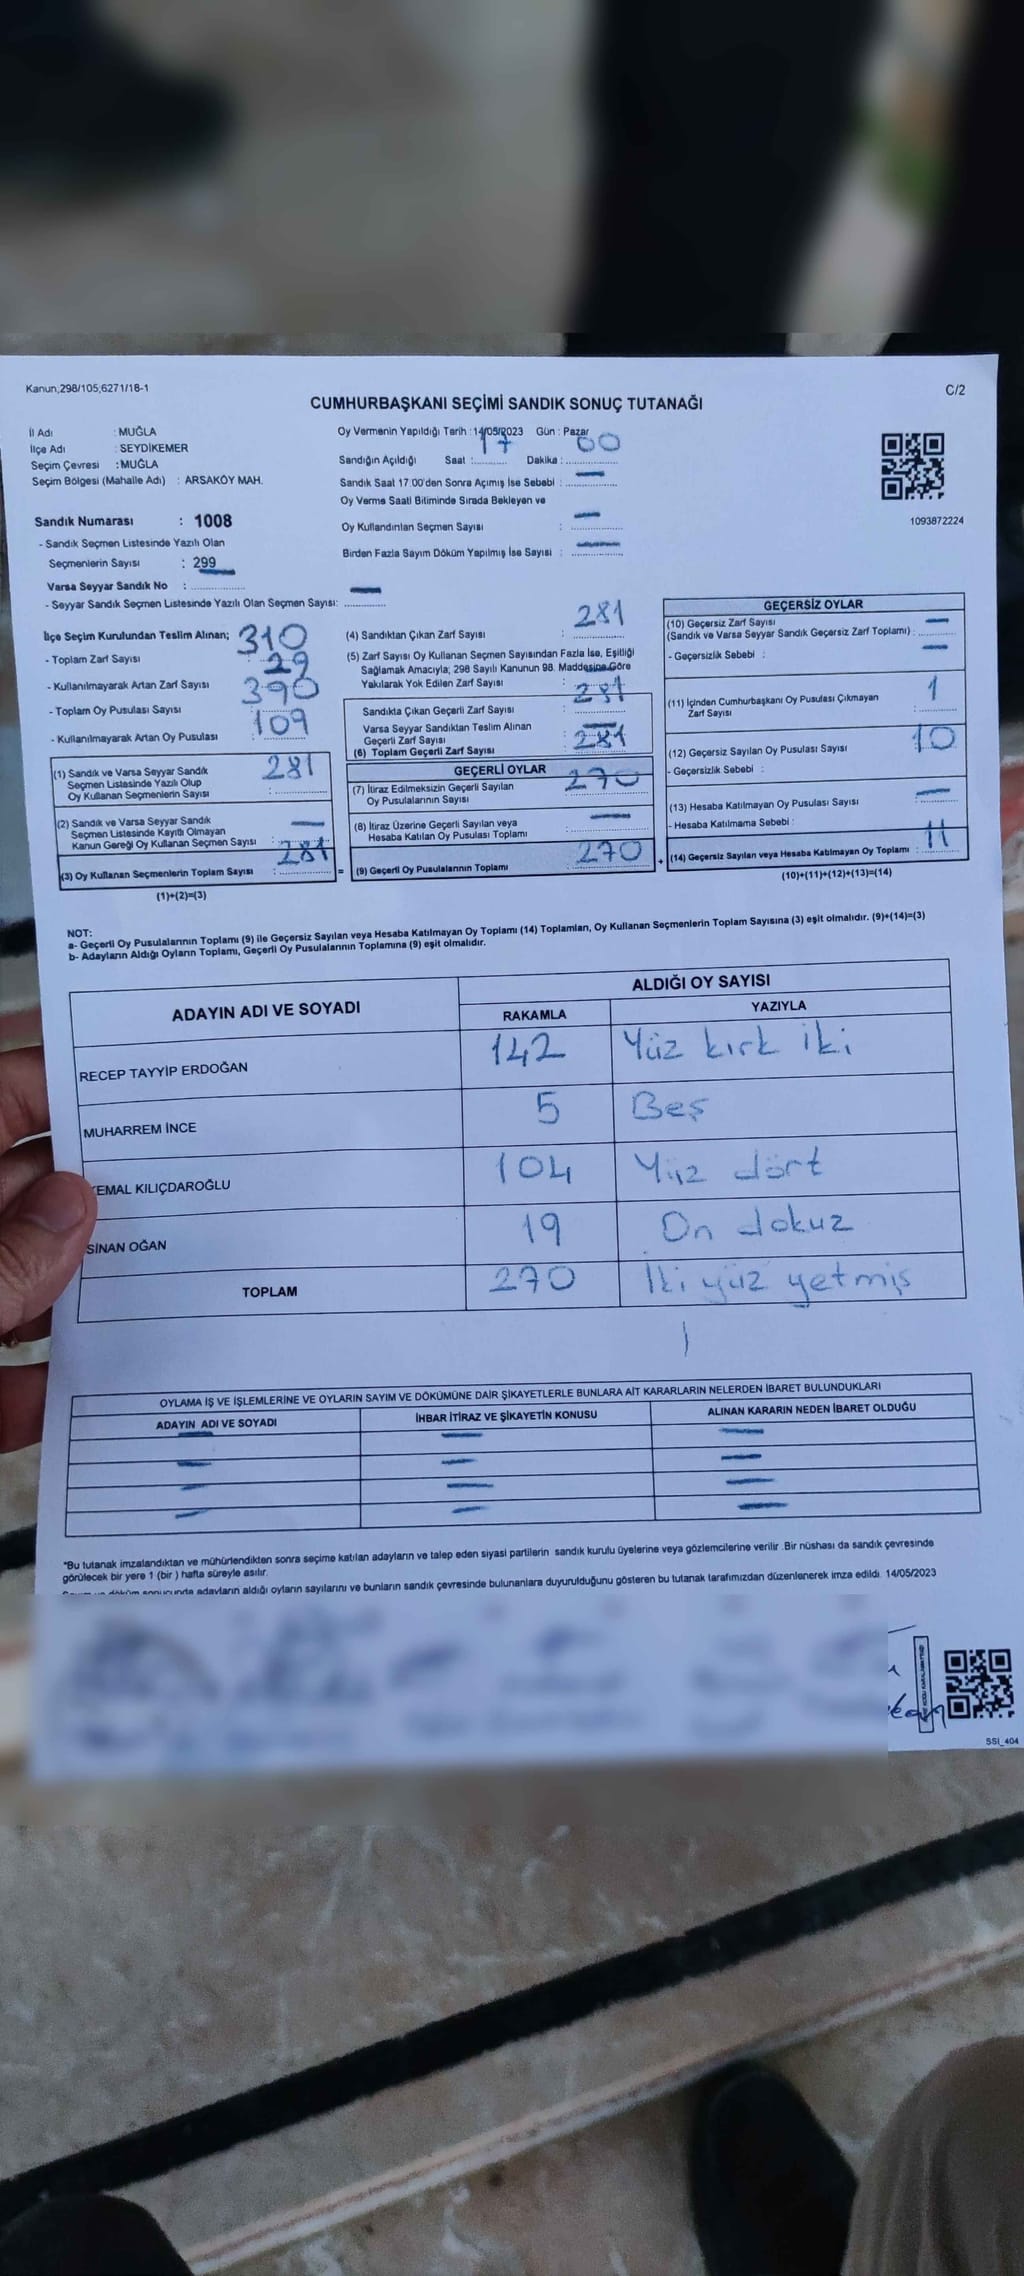 Kanun,298/105,6271/18-1
C/2
CUMHURBAŞKANI SEÇİMİ SANDIK SONUÇ TUTANAĞI
İl Adı : MUĞLA
İlçe Adı : SEYDİKEMER
Seçim Çevresi : MUĞLA
Seçim Bölgesi (Mahalle Adı) : ARSAKÖY MAH.
Sandık Numarası : 1008
- Sandık Seçmen Listesinde Yazılı Olan
Seçmenlerin Sayısı : 299
Varsa Seyyar Sandık No :
- Seyyar Sandık Seçmen Listesinde Yazılı Olan Seçmen Sayısı:
Oy Vermenin Yapıldığı Tarih : 14/05/2023 Gün : Pazar
Sandığın Açıldığı Saat : 17 Dakika : 00
Sandık Saat 17.00'den Sonra Açımış İse Sebebi :
Oy Verme Saati Bitiminde Sırada Bekleyen ve
Oy Kullandırılan Seçmen Sayısı :
Birden Fazla Sayım Döküm Yapılmış İse Sayısı :
1093872224
İlçe Seçim Kurulundan Teslim Alınan;
- Toplam Zarf Sayısı : 310
- Kullanılmayarak Artan Zarf Sayısı : 29
- Toplam Oy Pusulası Sayısı : 390
- Kullanılmayarak Artan Oy Pusulası : 109
(1) Sandık ve Varsa Seyyar Sandık
Seçmen Listesinde Yazılı Olup
Oy Kullanan Seçmenlerin Sayısı : 281
(2) Sandık ve Varsa Seyyar Sandık
Seçmen Listesinde Kayıtlı Olmayan
Kanun Gereği Oy Kullanan Seçmen Sayısı :
(3) Oy Kullanan Seçmenlerin Toplam Sayısı : 281
(1)+(2)=(3)
(4) Sandıktan Çıkan Zarf Sayısı : 281
(5) Zarf Sayısı Oy Kullanan Seçmen Sayısından Fazla İse, Eşitliği
Sağlamak Amacıyla; 298 Sayılı Kanunun 98. Maddesine Göre
Yakılarak Yok Edilen Zarf Sayısı :
Sandıkta Çıkan Geçerli Zarf Sayısı : 281
Varsa Seyyar Sandıktan Teslim Alınan
Geçerli Zarf Sayısı :
(6) Toplam Geçerli Zarf Sayısı : 281
GEÇERLİ OYLAR
(7) İtiraz Edilmeksizin Geçerli Sayılan
Oy Pusulalarının Sayısı : 270
(8) İtiraz Üzerine Geçerli Sayılan veya
Hesaba Katılan Oy Pusulası Toplamı :
= (9) Geçerli Oy Pusulalarının Toplamı : 270
GEÇERSİZ OYLAR
(10) Geçersiz Zarf Sayısı
(Sandık ve Varsa Seyyar Sandık Geçersiz Zarf Toplamı) :
- Geçersizlik Sebebi :
(11) İçinden Cumhurbaşkanı Oy Pusulası Çıkmayan
Zarf Sayısı : 1
(12) Geçersiz Sayılan Oy Pusulası Sayısı : 10
- Geçersizlik Sebebi :
(13) Hesaba Katılmayan Oy Pusulası Sayısı :
- Hesaba Katılmama Sebebi :
+ (14) Geçersiz Sayılan veya Hesaba Katılmayan Oy Toplamı : 11
(10)+(11)+(12)+(13)=(14)
NOT:
a- Geçerli Oy Pusulalarının Toplamı (9) ile Geçersiz Sayılan veya Hesaba Katılmayan Oy Toplamı (14) Toplamları, Oy Kullanan Seçmenlerin Toplam Sayısına (3) eşit olmalıdır. (9)+(14)=(3)
b- Adayların Aldığı Oyların Toplamı, Geçerli Oy Pusulalarının Toplamına (9) eşit olmalıdır.
ADAYIN ADI VE SOYADI ALDIĞI OY SAYISI
RAKAMLA YAZIYLA
RECEP TAYYİP ERDOĞAN 142 Yüz kırk iki
MUHARREM İNCE 5 Beş
EMAL KILIÇDAROĞLU 104 Yüz dört
SİNAN OĞAN 19 On dokuz
TOPLAM 270 İki yüz yetmiş
OYLAMA İŞ VE İŞLEMLERİNE VE OYLARIN SAYIM VE DÖKÜMÜNE DAİR ŞİKAYETLERLE BUNLARA AİT KARARLARIN NELERDEN İBARET BULUNDUKLARI
ADAYIN ADI VE SOYADI İHBAR İTİRAZ VE ŞİKAYETİN KONUSU ALINAN KARARIN NEDEN İBARET OLDUĞU
*Bu tutanak imzalandıktan ve mühürlendikten sonra seçime katılan adayların ve talep eden siyasi partilerin sandık kurulu üyelerine veya gözlemcilerine verilir .Bir nüshası da sandık çevresinde
görülecek bir yere 1 (bir ) hafta süreyle asılır.
sonucunda adayların aldığı oyların sayılarını ve bunların sandık çevresinde bulunanlara duyurulduğunu gösteren bu tutanak tarafımızdan düzenlenerek imza edildi. 14/05/2023
SSI_404